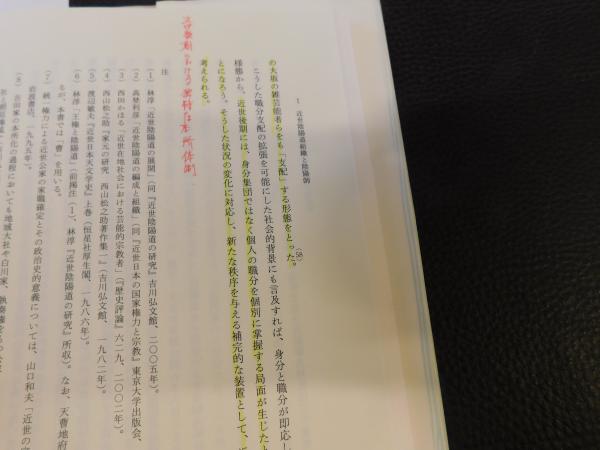 1 近世陰陽道組織と陰陽師
の大坂の雑芸能者らをも「支配」する形態をとった。(58)
こうした職分支配の拡張を可能にした社会的背景にも言及すれば、身分と職分が即応し
様態から、近世後期には、身分集団ではなく個人の職分を個別に掌握する局面が生じた
とになろう。そうした状況の変化に対応し、新たな秩序を与える補完的な装置として、
考えられる。
における 本所体制
注
(1) 林淳「近世陰陽道の展開」(同『近世陰陽道の研究』吉川弘文館、二〇〇五年)。
(2) 高埜利彦「近世陰陽道の編成と組織」(同『近世日本の国家権力と宗教』東京大学出版会、
(3) 西田かほる「近世在地社会における芸能的宗教者」(『歴史評論』六二九、二〇〇二年)。
(4) 西山松之助『家元の研究 西山松之助著作集一』(吉川弘文館、一九八二年)。
(5) 渡辺敏夫『近世日本天文学史』上巻(恒星社厚生閣、一九八六年)。
(6) 林淳「王権と陰陽道」(前掲注(1)、林淳『近世陰陽道の研究』所収)。なお、天曹地府
るが、本書では「曹」を用いる。
(7) 統一権力による近世公家の家職確定とその政治史的意義については、山口和夫「近世の
岩波書店、一九九五年)。
(8) 吉田家の本所化の過程においても地域大社や白川家、執奏権をもつ公